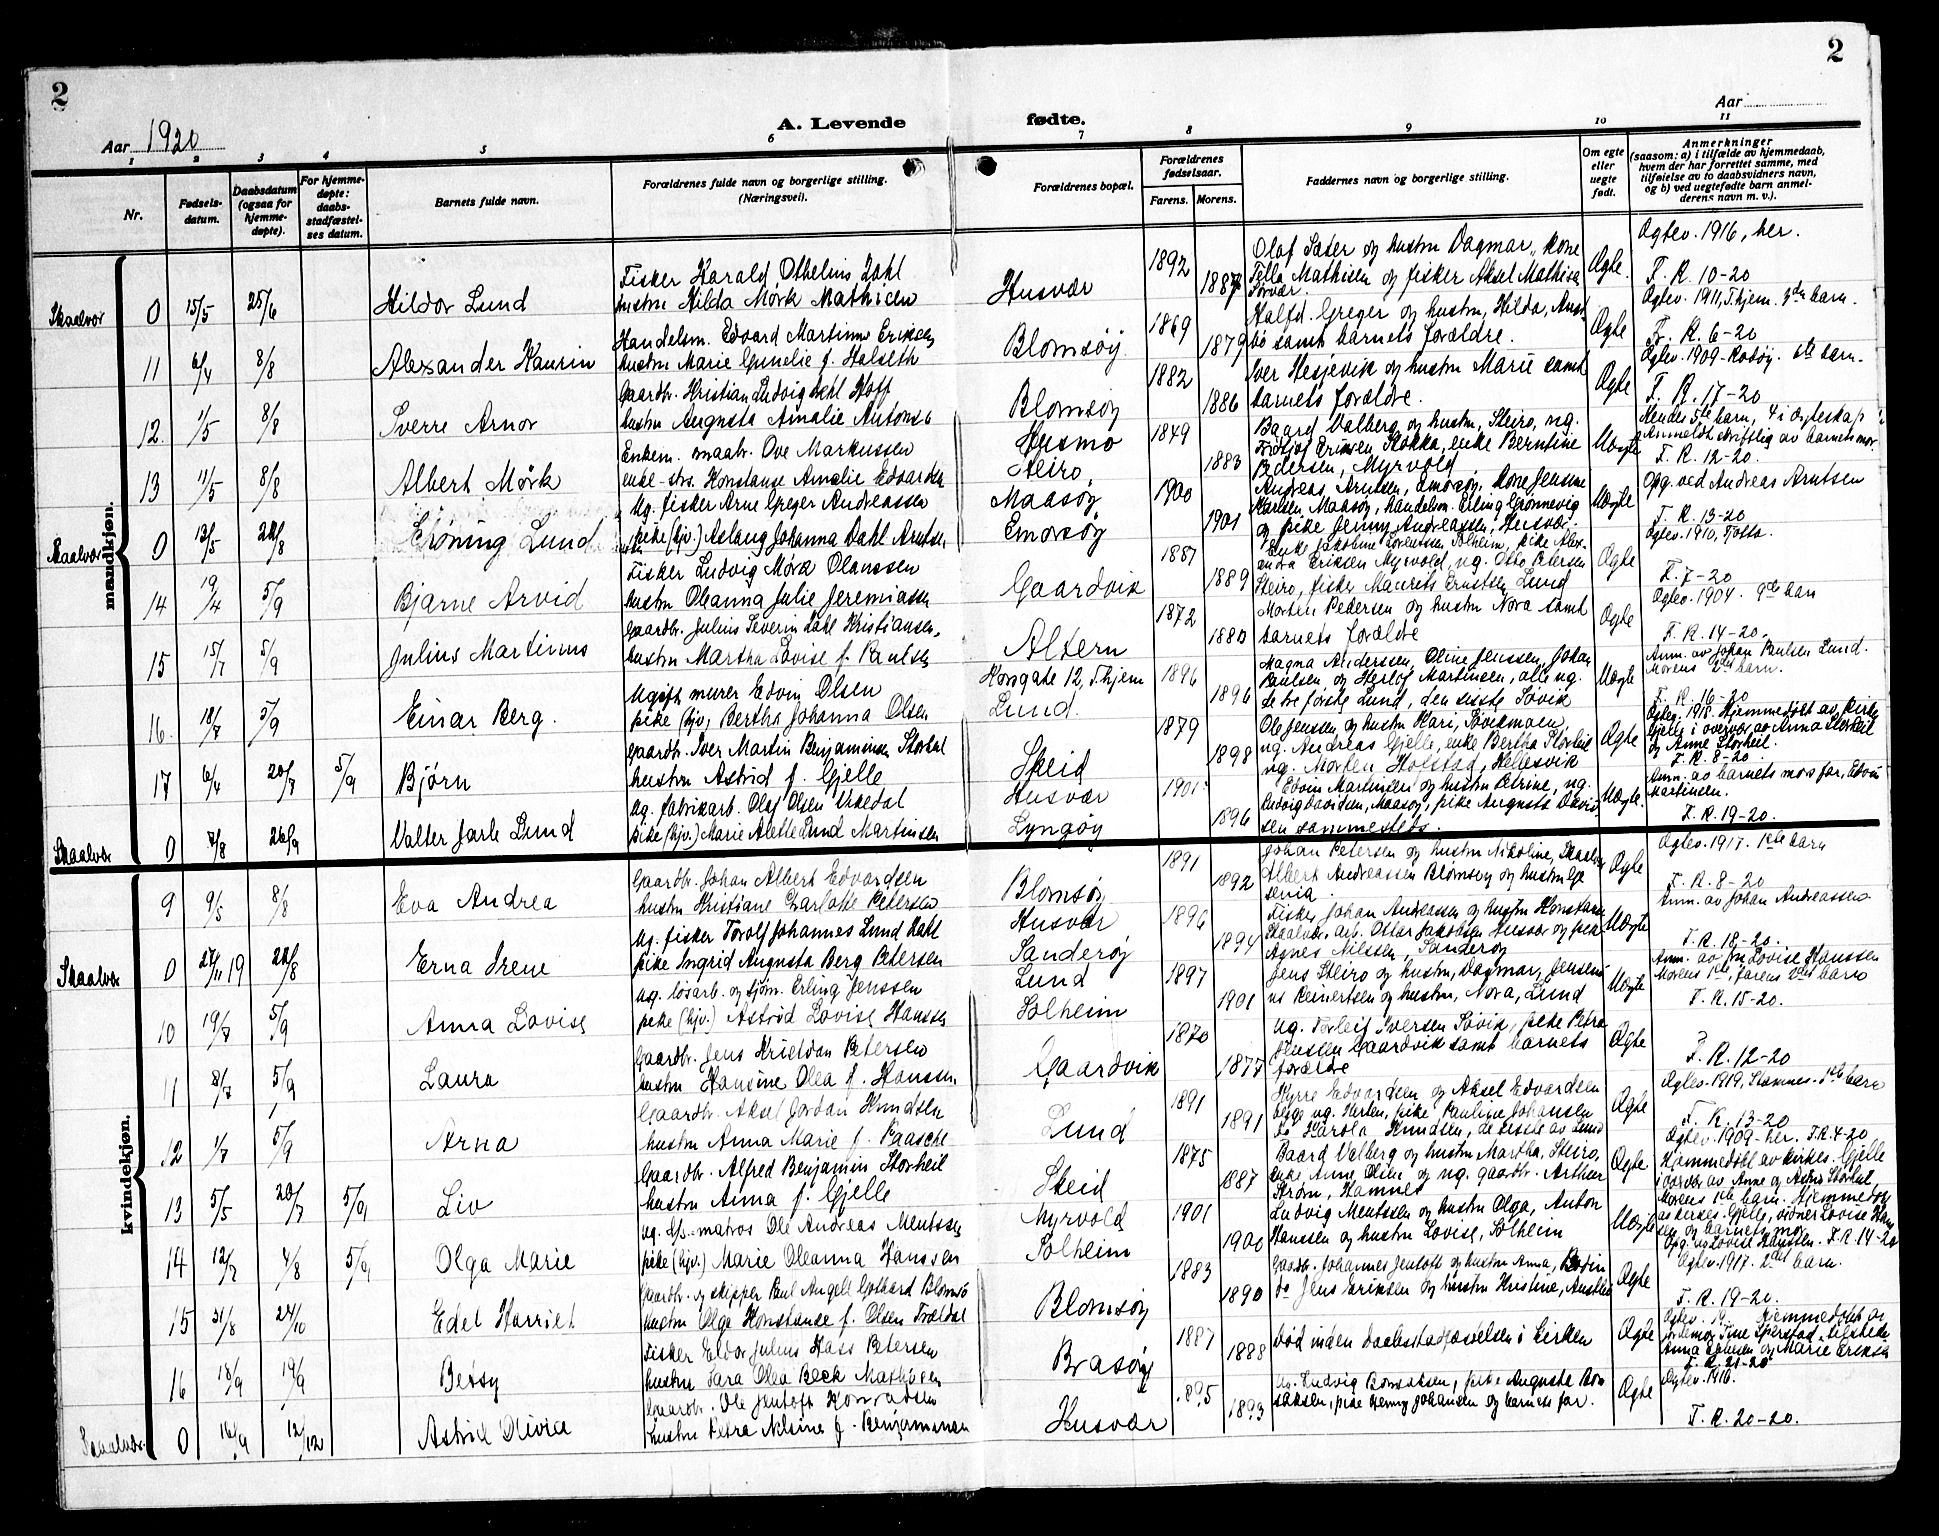 2
2
Aar 1920
A. Levende fødte.
Aar
1 2 3 4 5 6 7 8 9 10 11
Nr.
Fødsels-datum.
Daabsdatum (ogsaa for hjemme-døpte).
For hjemme-døpte: daabs-stadfæstel-ses datum.
Barnets fulde navn.
Forældrenes fulde navn og borgerlige stilling. (Næringsvei).
Forældrenes bopæl.
Forældrenes fødselsaar.
Farens. Morens.
Faddernes navn og borgerlige stilling.
Om egte eller uegte født.
Anmerkninger
(saasom: a) i tilfælde av hjemmedaab, hvem der har forrettet samme, med tilføielse av to daabsvidners navn, og b) ved uegtefødt barn anmel-derens navn m. v.).
mandkjøn.
Skaalvær 0 15/5 25/6 Hildor Lund
Fisker Harald Othelius Dahl
hustru Hilda Mørk Mathisen
Husvær 1892 1887
Olaf Sæter og hustru Dagmar, kone
Tella Mathisen og fisker Aksel Mathisen
Ægte.
Ægtev. 1916, her.
F. R. 10-20
11 6/4 8/8 Alexander Kaurin
Handelsm. Edvard Martinus Eriksen
hustru Marie Gunelie f. Halseth
Blomsøy 1869 1879
Halfd. Greger og hustru, Hilda,
bø samt barnets forældre.
Ægte
Ægtev. 1911, T.hjem. 3die barn.
F. R. 6-20
12. 1/5 8/8 Sverre Arnor
Gaardbr. Kristian Ludvig Dahl Hoff
hustru Augusta Amalie Antons
Blomsøy 1882 1886
Iver Hesjevik og hustru Marie samt
barnets forældre.
Ægte
Ægtev. 1909- Rødøy. 6te barn.
F. R. 17-20
13 11/5 8/8 Albert Mørk
Enkem. maabr. Ove Markussen
enke Konstanse Amalie Edvardsen
Husmo
Steiro, 1849 1883
Baard Valberg og hustru, Steiro, ug.
Fridtjof Eriksen Stokka, enke Berntine
Pedersen, Myrvold
Uægte
Hendes 5te barn, 4 i ægteskap
Anmeldt skriftlig av barnets mor.
F. R. 12-20.
Skaalvær 0 13/5 22/8 Grøning Lund
Ug. fisker Arne Greger Andreassen
pike (hjv.) Aslaug Johanna Dahl Arntsen
Maasøy
Emarsøy 1900 1901
Andreas Arntsen, Emarsøy, kone Jensine
Karlsen, Maasøy, handelsm. Erling Grønnevig
og pike Jenny Andreassen, Husvær.
Uægte
Opg. ved Andreas Arntsen
F. R. 13-20
14 19/4 5/9 Bjarne Arvid
Fisker Ludvig Mørk Olaussen
hustru Oleanna Julie Jeremiassen
Gaardvik 1887 1889
Enke Jakobine Lorentsen Solheim, pike Alex-
andra Eriksen Myrvold, ug. Otto Petersen
Steiro, fisker Maurits Ernstsen Lund
Ægte
Ægtev. 1910, Tjøtta.
F. 7-20
15 15/7 5/9 Julius Martinus
Gaardbr. Julius Severin Dahl Kristiansen,
hustru Martha Lovise f. Paulsen
Altern 1872 1880
Morten Pedersen og hustru Nora samt
barnets forældre
Ægte
Ægtev. 1904. 9de barn
F. R. 14-20.
16. 18/7 5/9 Einar Berg.
Ugift murer Edvin Olsen
pike (hjv) Bertha Johanna Olsen
Korsgate 12, T.hjem
Lund. 1896 1896
Magna Anderssen, Oline Jenssen, Johan
Paulsen og Herlof Martinsen, alle ug.
de tre første Lund, den siste Søvik
Uægte
Anm. av Johan Paulsen Lund.
Morens 2det barn.
F. R. 16-20
17 6/4 20/7 5/9 Bjørn
Gaardbr. Iver Martin Benjaminsen Storheil
hustru Astrid f. Gjelle
Skeid 1879 1898
Ole Jenssen og hustru Kari, Søvikmoen,
ug. Andreas Gjelle, enke Bertha Storheil
ug. Morten Holstad, Hellesvik
Ægte
Ægtev. 1918. Hjemmedøbt av kirkes.
Gjelle i overvær av Anna Storheil
og Anne Storheil.
F. R. 8-20.
Skaalvær 0 7/8 26/9 Valter Jarle Lund
Ug. fabrikarb. Olaf Olsen
pike (hjv.) Marie Alette Lund Martinsen
Husvær
Lyngøy 1901 1896
Edvin Martinsen og hustru Petrine, ug.
Ludvig Davidsen, Maasøy, pike Augusta David-
sen sammesteds.
Uægte.
Anm. av barnets morfar, Edvin
Martinsen.
F. R. 19-20.
kvindekjøn.
9 9/5 8/8 Eva Andrea
Gaardbr. Johan Albert Edvardsen
hustru Kristiane Charlotte Petersen
Blomsøy 1891 1892
Johan Petersen og hustru Nikoline, Skaalvær
Albert Andreassen Blomsøy og hustru
Ægte
Ægtev. 1917. 1ste barn
F. R. 8-20
Skaalvær 0 27/11 19 22/8 Erna Irene
Ug. fisker Torolf Johannes Lund Dahl
pike Ingrid Augusta Berg Petersen
Husvær
Sanderøy 1896 1894
Fisker Johan Andreassen og hustru Konstanse
Skaalvær, arb. Ottar Jakobsen Husvær og pike
Agnes Nilssen, Sanderøy
Uægte
Anm. av Johan Andreassen
F. R. 18-20.
10 19/7 5/9 Anna Lovise
Ug. løsarb. og sjøm. Erling Jenssen
pike (hjv.) Astrid Lovise Hanssen
Lund
Solheim 1897 1901
Jens Steiro og hustru, Dagmar, Jensen
us Reinertsen og hustru, Nora, Lund
Uægte
Anm. av fru Lovise Hanssen
Morens 1ste, farens 2det barn
F. R. 15-20.
11 8/7 5/9 Laura
Gaardbr. Jens Kristian Petersen
hustru Hansine Olea f. Hanssen
Gaardvik 1870 1877
Ug. Torleif Iversen Søvik, pike Petra
Jenssen Gaardvik samt barnets
forældre
Ægte
F. R. 12-20
12 1/7 5/9 Arna
Gaardbr. Aksel Jordan Knudsen
hustru Anna Marie f. Paasche
Lund 1891 1891
Kyrre Edvardsen og Aksel Edvardsen
begge ug. Herten, pike Pauline Johansen
do Karola Knudsen, de siste av Lund
Ægte
Ægtev. 1919, Stamnes. 1ste barn
F. R. 13-20
13 5/5 20/7 5/9 Liv
Gaardbr. Alfred Benjamin Storheil
hustru Anna f. Gjelle
Skeid 1875 1887
Baard Valberg og hustru Martha, Steiro,
enke Anne Olsen og ug. gaardbr. Arthur
Strøm, Hamnes
Ægte
Ægtev. 1909- her. F.R. 4-20
Hjemmedøbt av kirkes. Gjelle
i overvær av Anne og Astrid Storheil,
14 12/7 4/8 5/9 Olga Marie
Ug. matros Ole Andreas Mentssen
pike (hjv.) Marie Oleanna Hanssen
Myrvold
Solheim 1901 1900
Ludvig Mentssen og hustru Olga, Anton
Hanssen og hustru Lovise, Solheim
Uægte
Morens 1ste barn. Hjemmedøbt
av kirkes. Gjelle, vidner Lovise Hans
sen og barnets mor
Opg. ug Lovise Hanssen. F. R. 14-20
15 31/8 24/10 Edel Harriet
Gaardbr. og skipper Paul Angell Gotaard Blomsø
hustru Olga Konstanse f. Olsen Trældal
Blomsøy 1883 1890
Gaardbr. Johannes Jentoft og hustru Anna,
do Jens Eriksen og hustru Kristine,
Ægte
Ægtev. 1917. 2det barn.
F. R. 19-20.
16 18/9 19/9 Bersy
Fisker Eldor Julius Hass Petersen
hustru Sara Olea Beck Mathisen
Brasøy 1887 1888
Død inden daabsstadfæstelsen i kirken
Ægte
Ægtev. 19 . Hjemmedøbt av
jordemor Tine Sperstad, tilstede
Anna og Marie Eriksen
F. R. 21-20
Skaalvær. 0 16/9 12/12 Astrid Olivie
Gaardbr. Ole Jentoft Konradsen
hustru Petra Nilsine f. Benjaminsen
Husvær 1895 1893
Ug. Ludvig Bonsaksen, pike Augusta Bon
saksen, pike Henny Johansen og barnets far.
Ægte
Ægtev. 1916.
F. R. 20-20.